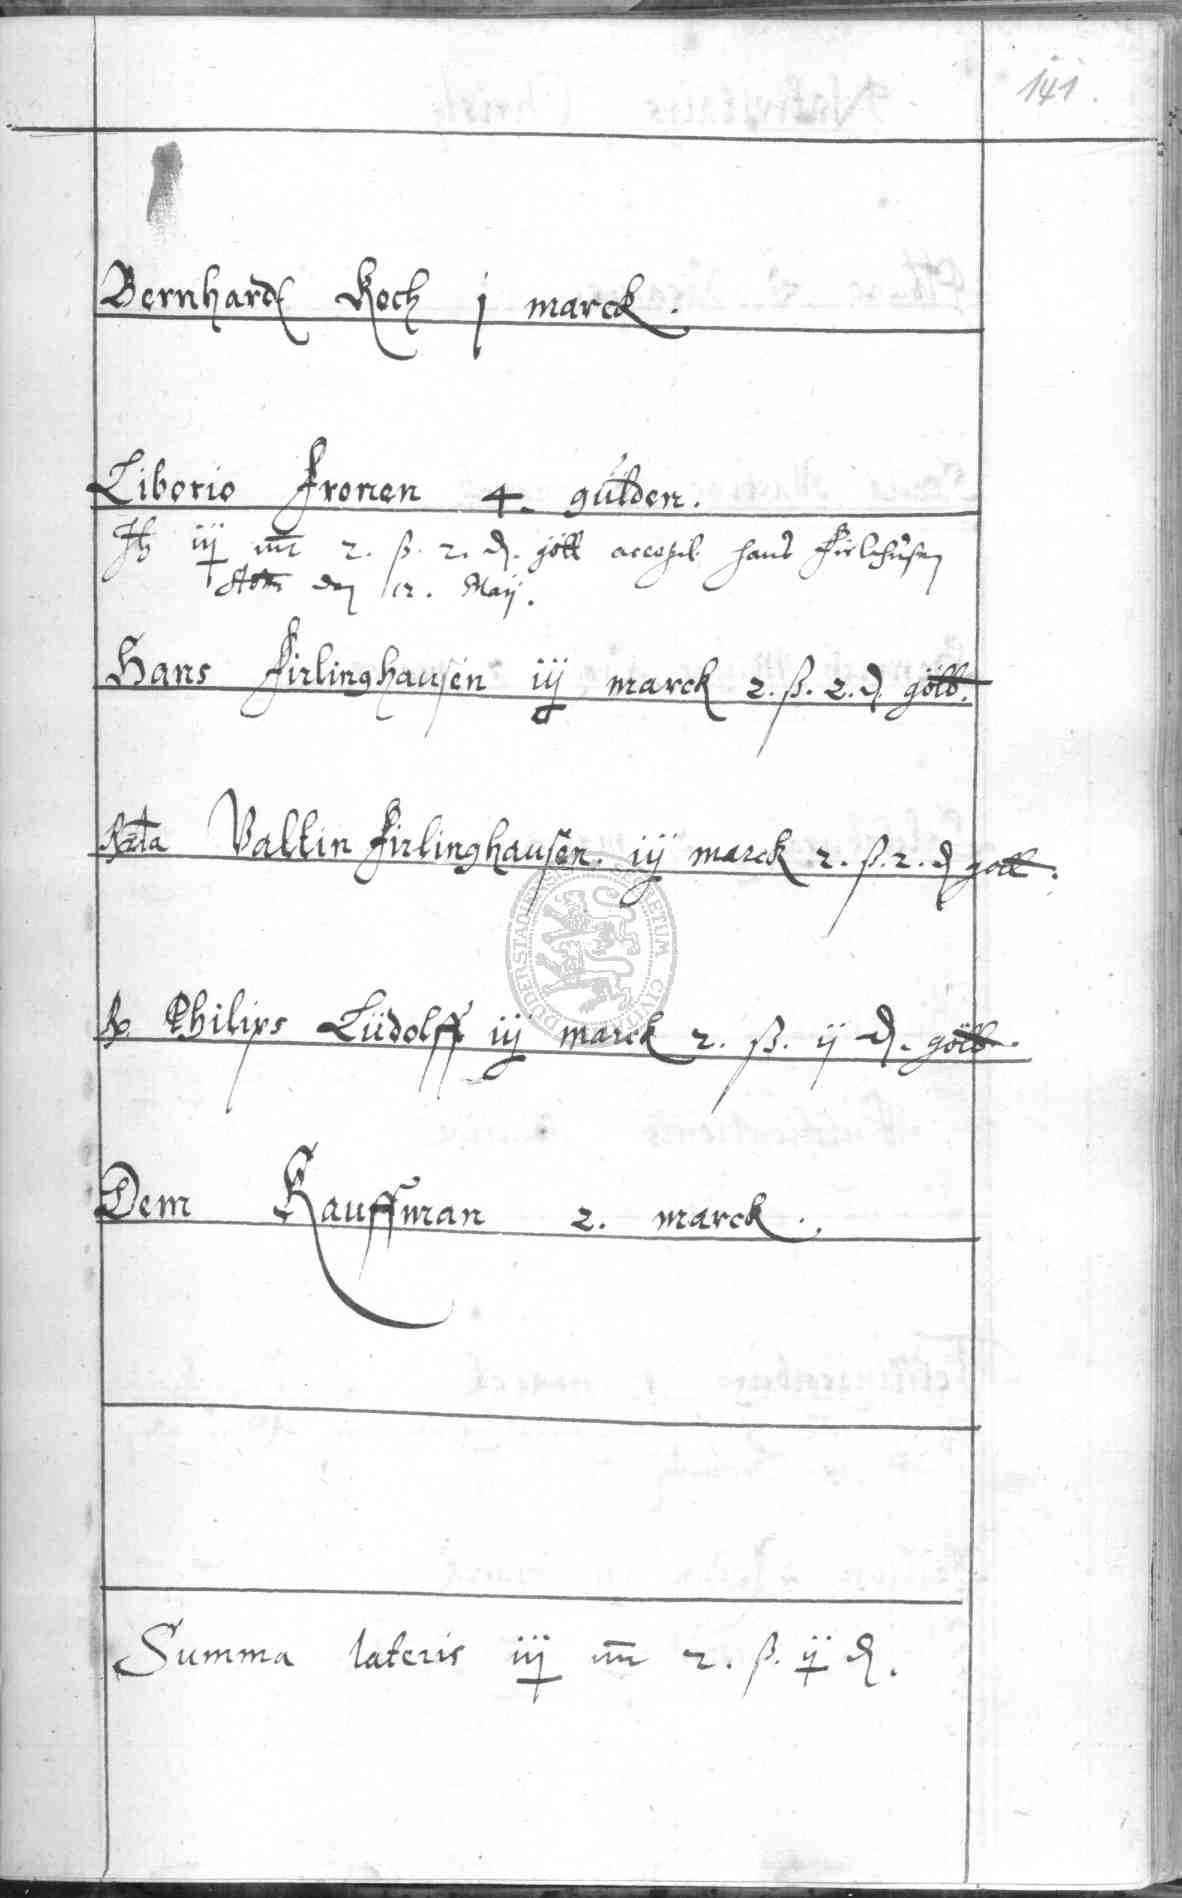 141.
Bernhardt Koch j marck.
Liborio Fronen 4. gulden.
iij mr 2. ß. 2. d. gött accepit hans Firlehusen
den 12. Maij.
Hans Firlinghausen iij marck 2. ß. 2. d. gött.
Valtin Firlinghausen. iij marck 2. ß. 2. d gott.
Philips Lüdolff iij marck 2. ß. ij d. gött.
Dem Kauffman 2. marck.
Summa lateris iij mr 2. ß. ij d.